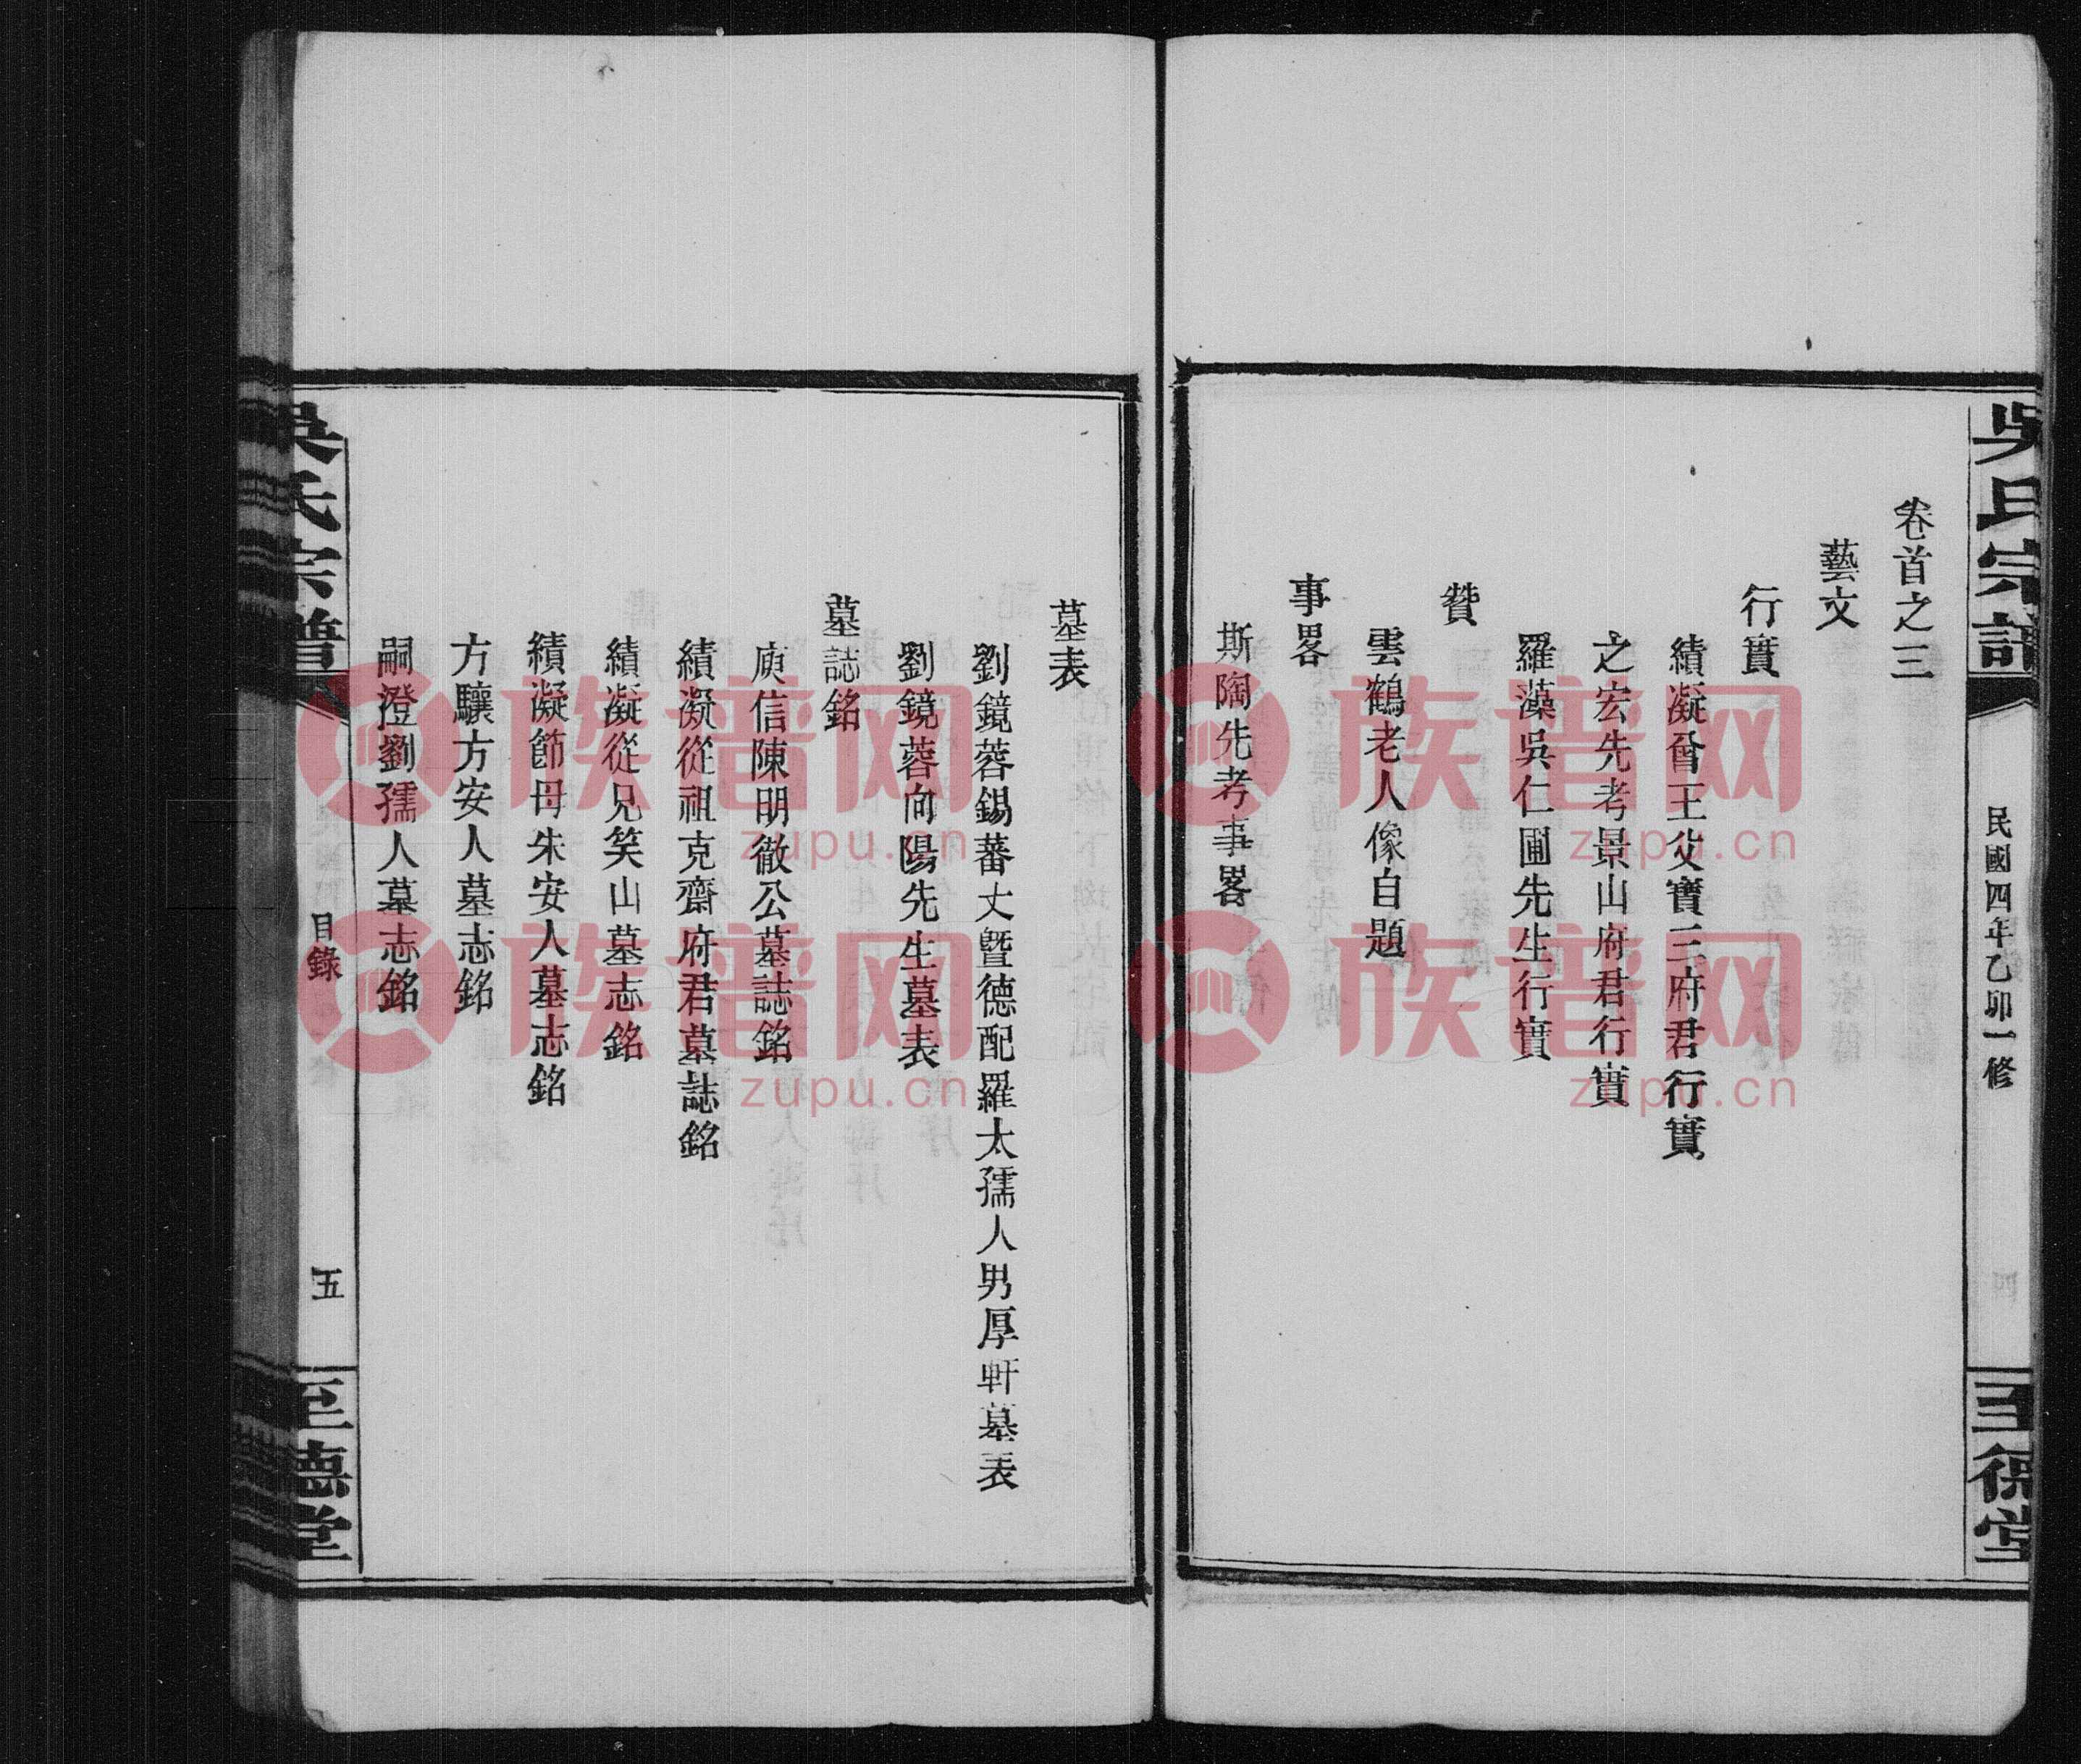 吳氏宗譜
民國四年乙卯一修
四
至德堂
卷首之三
藝文
行實
績凝曾王父寶三府君行實
之宏先考景山府君行實
羅藻吳仁圃先生行實
贊
雲鶴老人像自題
事畧
斯陶先考事畧
墓表
劉鏡蓉錫蕃丈曁德配羅太孺人男厚軒墓表
劉鏡蓉向陽先生墓表
墓誌銘
庾信陳明徹公墓誌銘
績凝從祖克齋府君墓誌銘
績凝從兄笑山墓志銘
績凝節母朱安人墓志銘
方驤方安人墓志銘
嗣澄劉孺人墓志銘
吳氏宗譜
目錄
五
至德堂
族谱网
zupu.cn
族谱网
zupu.cn
族谱网
zupu.cn
族谱网
zupu.cn